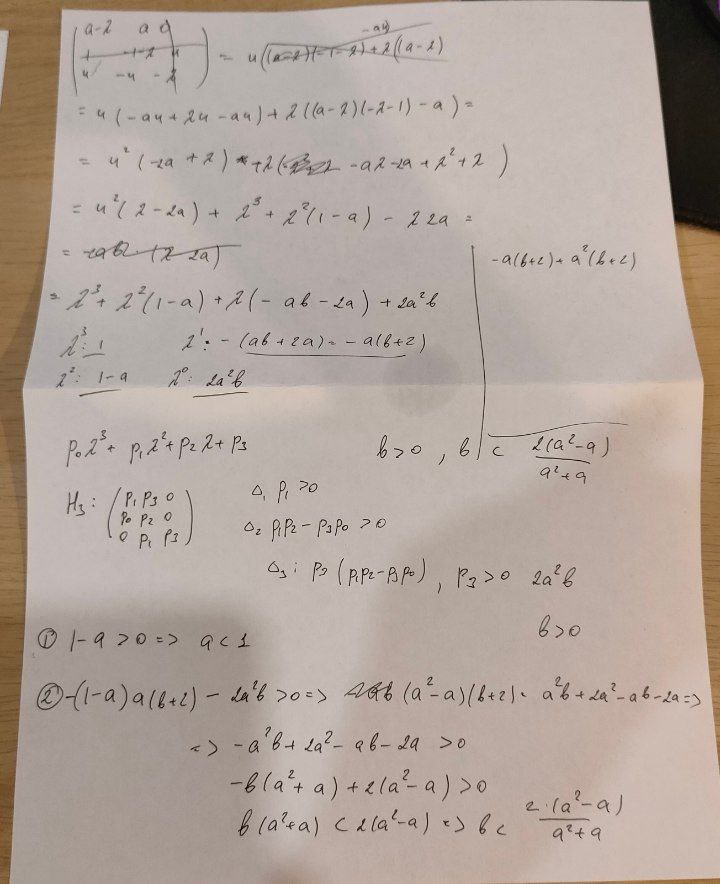 a-λ a 0
1 -1-λ u
u -u -λ
= u((a-λ)(-1-λ)+λ(a-λ) -au
= u(-au+λu-au)+λ((a-λ)(-λ-1)-a)=
= u²(-2a+λ) +λ( -aλ-2a+λ²+λ)
= u²(λ-2a) + λ³+λ²(1-a) - λ2a =
= -ab (λ 2a)
= λ³+λ²(1-a)+λ(-ab-2a)+2a²b
-a(b+2)+a²(b+2)
λ³: 1 λ¹: -(ab+2a)= -a(b+2)
λ²: 1-a λ⁰: 2a²b
p₀λ³+p₁λ²+p₂λ+p₃ b>0, b < 2(a²-a)/a²+a
H₃: (p₁ p₃ 0
p₀ p₂ 0
0 p₁ p₃)
Δ₁ p₁>0
Δ₂ p₁p₂-p₃p₀>0
Δ₃: p₃(p₁p₂-p₃p₀), p₃>0 2a²b
b>0
① 1-a>0 => a<1
② -(1-a)a(b+2)-2a²b>0 => (a²-a)(b+2)- a²b+2a²-ab-2a=>
=> -a²b+2a²-ab-2a >0
-b(a²+a)+2(a²-a)>0
b(a²+a)<2(a²-a) => b< 2·(a²-a)/a²+a